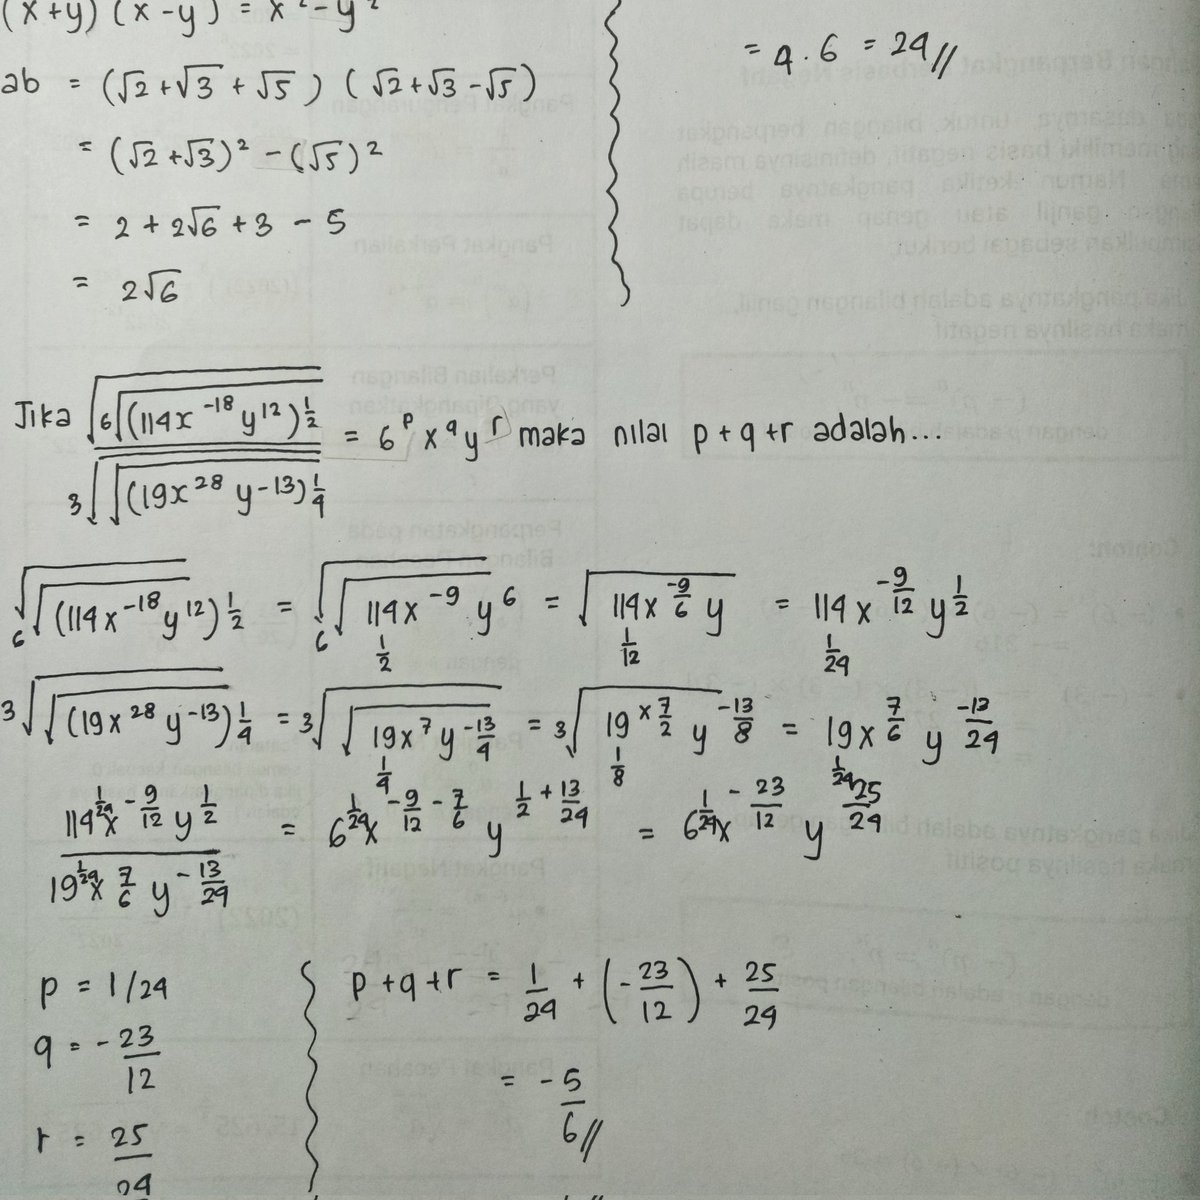 (x+y) (x-y) = x² - y²
ab = (√2 + √3 + √5) (√2 + √3 - √5)
= (√2 + √3)² - (√5)²
= 2 + 2√6 + 3 - 5
= 2√6
= 4 . 6 = 24 //
Jika √(⁶√((114x⁻¹⁸ y¹²)^½)) / ³√(√((19x²⁸ y-13)^¼)) = 6ᵖ x^q yʳ maka nilai p + q + r adalah...
√(⁶√((114x⁻¹⁸ y¹²)^½)) = √(⁶√(114^(1/2) x⁻⁹ y⁶)) = √(114^(1/12) x^(-9/6) y) = 114^(1/24) x^(-9/12) y^(1/2)
³√(√((19x²⁸ y⁻¹³)^¼)) = ³√(√(19^(1/4) x⁷ y^(-13/4))) = ³√(19^(1/8) x^(7/2) y^(-13/8)) = 19^(1/24) x^(7/6) y^(-13/24)
114^(1/24) x^(-9/12) y^(1/2) / 19^(1/24) x^(7/6) y^(-13/24) = 6^(1/24) x^(-9/12 - 7/6) y^(1/2 + 13/24) = 6^(1/24) x^(-23/12) y^(25/24)
p = 1/24
q = - 23/12
r = 25/24
p + q + r = 1/24 + (- 23/12) + 25/24
= - 5/6 //